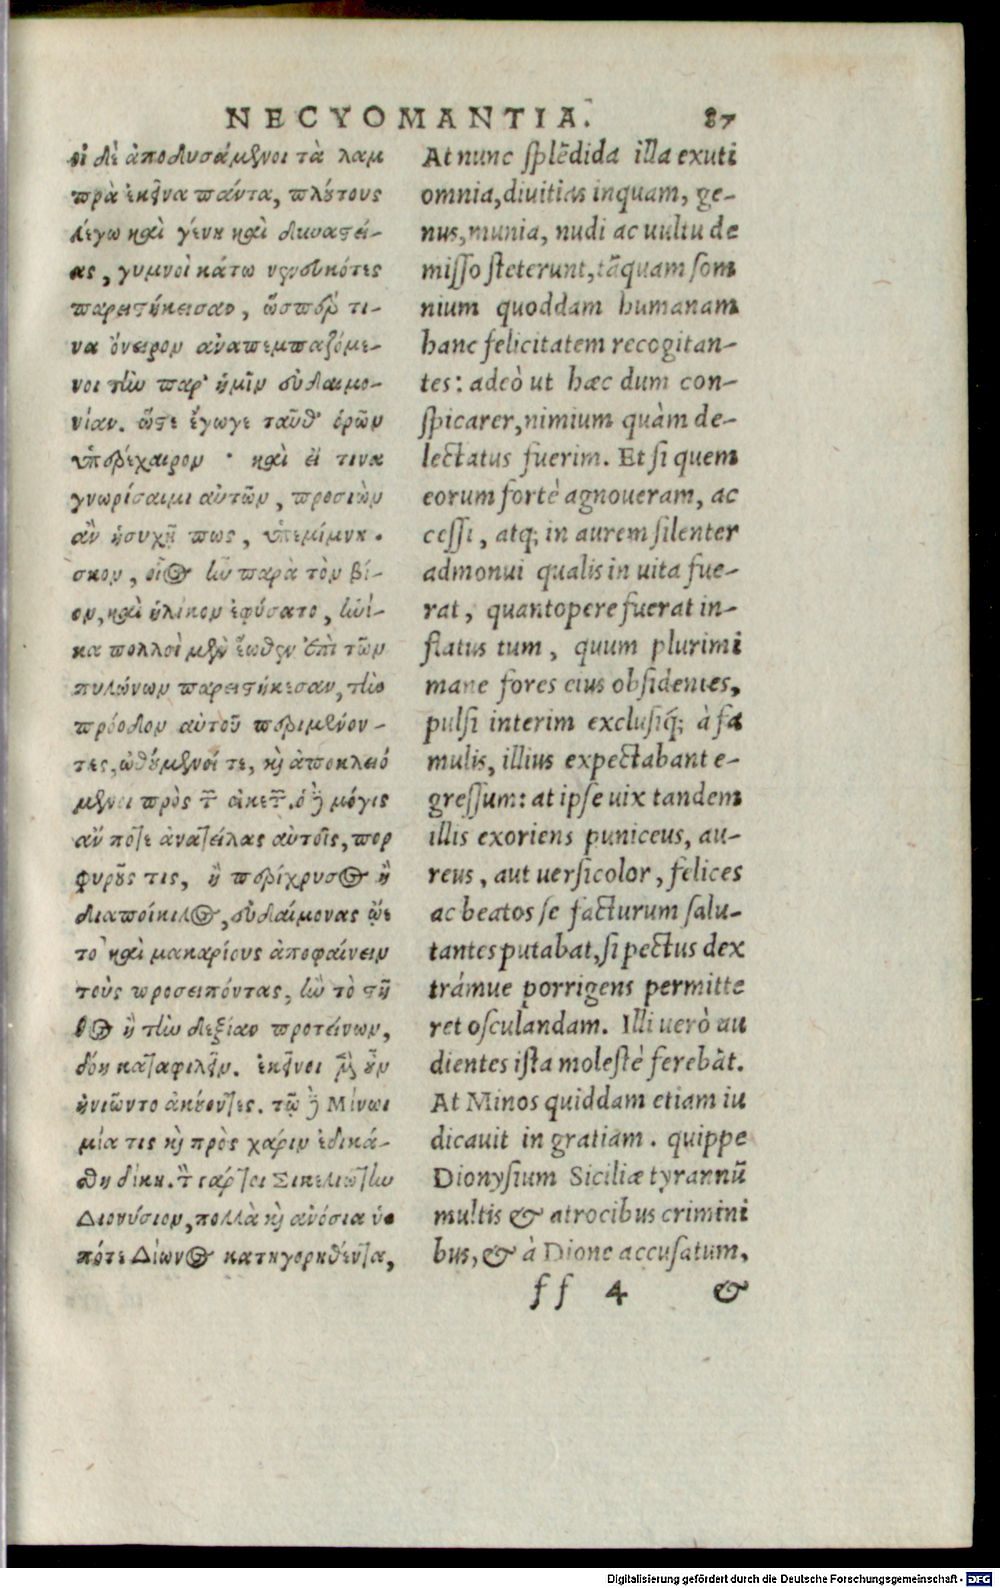 NECYOMANTIA. 87
οἱ δὲ ἀποδυσάμενοι τὰ λαμ
πρὰ ἐκεῖνα πάντα, πλούτους
λέγω καὶ γένη καὶ δυναστεί-
ας, γυμνοὶ κάτω νενευκότες
παρειστήκεισαν, ὥσπερ τι-
να ὄνειρον ἀναπεμπαζόμε-
νοι τὴν παρ' ἡμῖν εὐδαιμο-
νίαν. ὥστε ἔγωγε ταῦθ' ὁρῶν
ὑπερέχαιρον · καὶ εἴ τινα
γνωρίσαιμι αὐτῶν, προσιὼν
ἂν ἡσυχῆ πως, ὑπεμίμνη.
σκον, οἷος ἦν παρὰ τὸν βί-
ον, καὶ ἡλίκον ἐφύσατο, ἡνί-
κα πολλοὶ μὲν ἕωθεν ἐπὶ τῶν
πυλώνων παρειστήκεσαν, τὴν
πρόοδον αὐτοῦ περιμένον-
τες, ὠθούμενοί τε, καὶ ἀποκλειό
μενοι πρὸς τ οἰκετ. ὁ δὲ μόγις
ἄν ποτε ἀνατείλας αὐτοῖς, πορ
φυροῦς τις, ἢ περίχρυσος ἢ
διαποίκιλος, εὐδαίμονας ᾤε
το καὶ μακαρίους ἀποφαίνειν
τοὺς προσειπόντας, ἢν τὸ στῆ
θος ἢ τὴν δεξιὰν προτείνων,
δοίη καταφιλεῖν. ἐκεῖνοι μὲν οὖν
ἠνιῶντο ἀκούοντες. τῷ δὲ Μίνωι
μία τις καὶ πρὸς χάριν ἐδικά-
σθη δίκη. τ γάρ τοι Σικελιώτην
Διονύσιον, πολλὰ καὶ ἀνόσια ὑ
πότε Δίωνος κατηγορηθέντα,
At nunc splēdida illa exuti
omnia, divitias inquam, ge-
nus, munia, nudi ac uultu de
misso steterunt, tāquam som
nium quoddam humanam
hanc felicitatem recogitan-
tes: adeò ut hæc dum con-
spicarer, nimium quàm de-
lectatus fuerim. Et si quem
eorum fortè agnoueram, ac
cessi, atq; in aurem silenter
admonui qualis in uita fue-
rat, quantopere fuerat in-
flatus tum, quum plurimi
mane fores eius obsidentes,
pulsi interim exclusiq́; à fa
mulis, illius expectabant e-
gressum: at ipse uix tandem
illis exoriens puniceus, au-
reus, aut uersicolor, felices
ac beatos se facturum salu-
tantes putabat, si pectus dex
trámue porrigens permitte
ret osculandam. Illi uerò au
dientes ista molestè ferebāt.
At Minos quiddam etiam iu
dicauit in gratiam. quippe
Dionysium Siciliæ tyrannū
multis & atrocibus crimini
bus, & à Dione accusatum,
ff 4 &
Digitalisierung gefördert durch die Deutsche Forschungsgemeinschaft - DFG